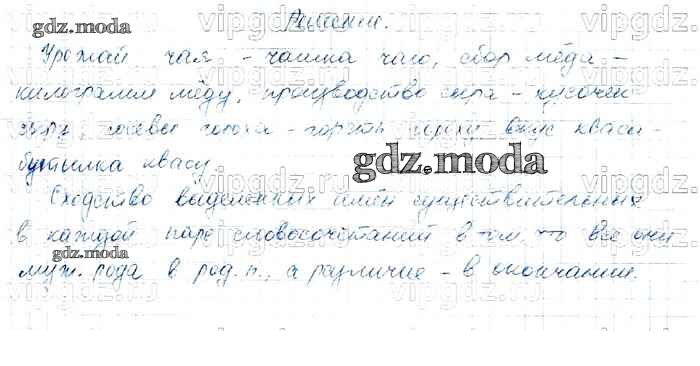 Решение.
Урожай чая - чашка чаю, сбор мёда -
килограмм мёду, производство сыра - кусочек
сыру, посевы гороха - горсть гороху, вкус кваса -
бутылка квасу.
Сходство выделенных имён существительных
в каждой паре словосочетаний в том, что все они
муж. рода в род. п., а различие - в окончании.
gdz.moda
gdz.moda
gdz.moda
vipgdz.ru